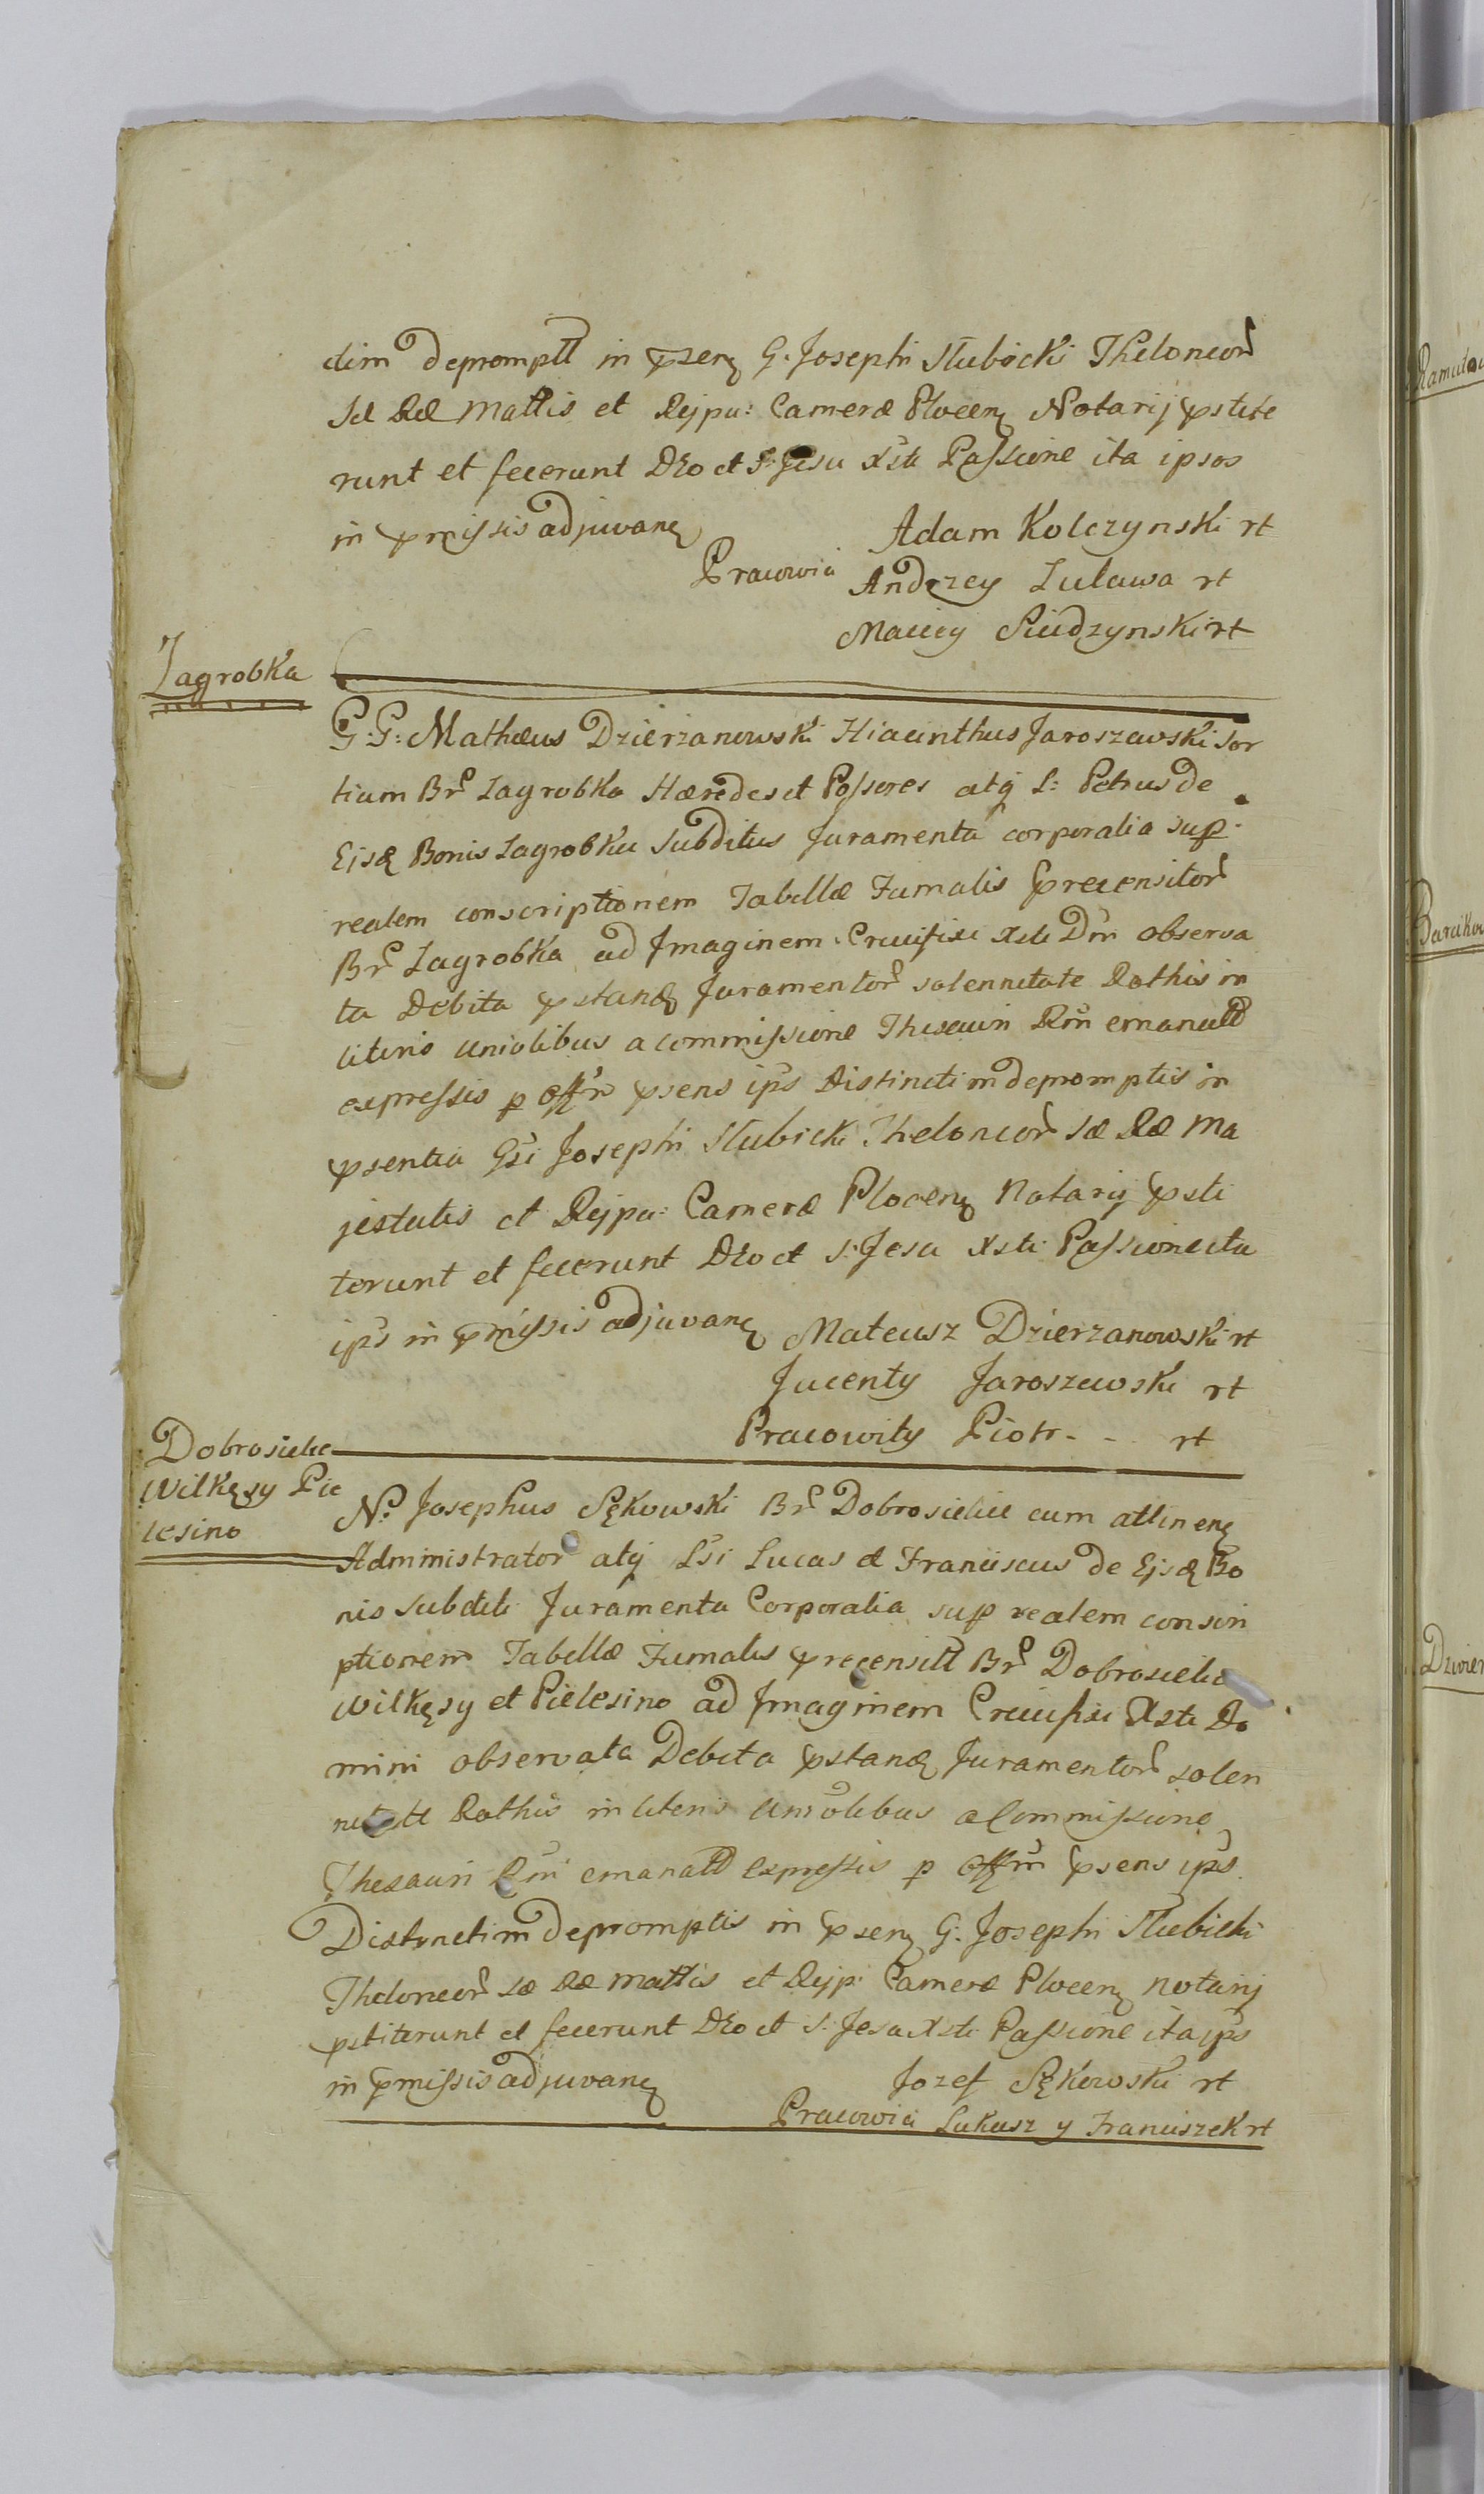 dim depromptt in psenę G. Josephi Słubicki Theloneor
Sæ Ræ Mattis et Rejpu: Cameræ Plocenę Notarij pstite
runt et fecerunt Dẽo et S: Jesu Xsti Passione ita ipsos
in pmissis adjuvanę
Adam Kolczynski rt
Pracowici Andrzey Lulawa rt
Maciey Siudzynski rt
Zagrobka
G: G: Mathæus Dzierzanowski Hiacinthus Jaroszewski Sor
tium Br Zagrobka Hæredes et Possores atq L: Petrus de
Ejsd Bonis Zagrobka Subditus Juramenta corporalia sup
realem conscriptionem Tabellæ Fumalis precensitor
Br Zagrobka ad Imaginem Crucifixi Xsti Dni observa
ta Debita pstand Juramentor solennitate Rothis in
literis uniolibus a commissione Thesauri Rni emanatt
expressis p offm psens ips distinctim depromptis in
psentia Gsi Josephi Słubicki Theloneor Sæ Ræ Ma
jestatis et Rejpu: Cameræ Plocenę Notarij psti
terunt et fecerunt Dẽo et S: Jesu Xsti Passione ita
ips in pmissis adjuvanę Mateusz Dzierzanowski rt
Jacenty Jaroszewski rt
Pracowity Piotr - - rt
Dobrosielice
Wilkęsy Pie
lesino
N. Josephus Sękowski Br Dobrosielice cum attinenę
Administrator atq Lsi Lucas et Franciscus de Ejsd Bo
nis Subditi Juramenta Corporalia sup realem conscri
ptionem Tabellæ Fumalis precensitt Br Dobrosielice
Wilkęsy et Pielesino ad Imaginem Crucifixi Xsti Do
mini observata Debita pstand Juramentor solen
nitate Rothis in literis uniolibus a Commissione
Thesauri Rni emanatt expressis p offm psens ips
Distinctim depromptis in psenę G: Josephi Słubicki
Theloneor Sæ Ræ Mattis et Rejp: Cameræ Plocenę Notarij
pstiterunt et fecerunt Dẽo et S: Jesu Xsti Passione ita ips
in pmissis adjuvanę Jozef Sękowski rt
Pracowici Łukasz y Franciszek rt